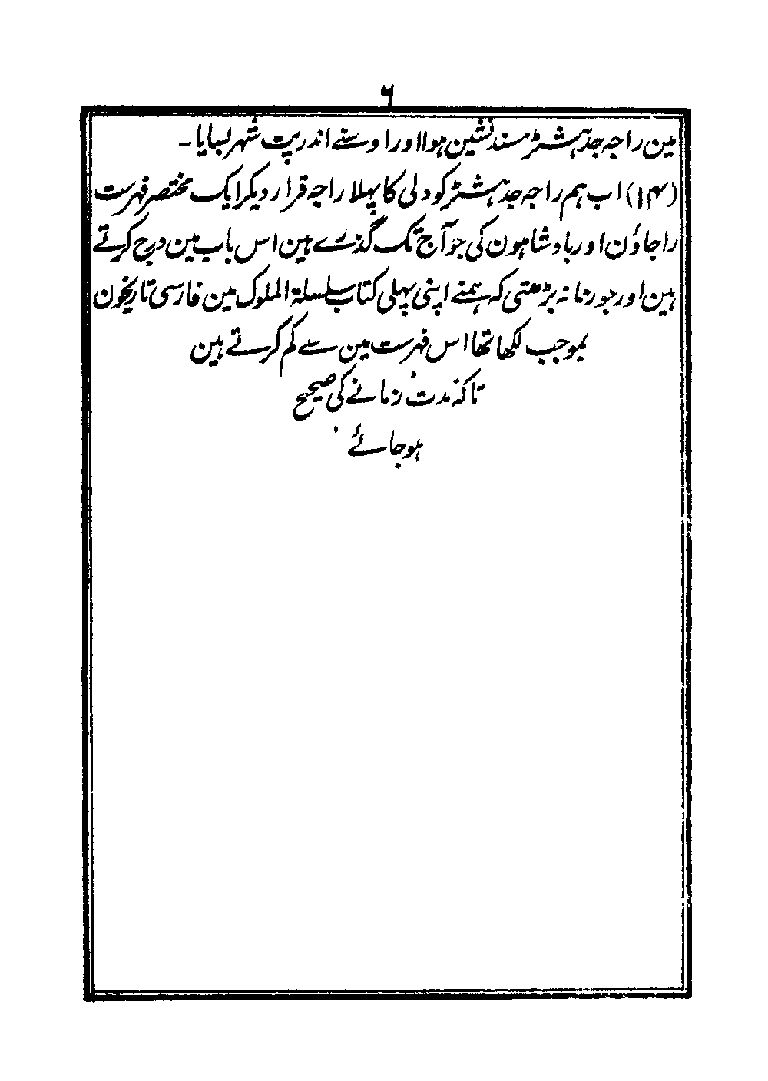 ۶
مین راجہ جدہشٹر مسند نشین ہوا اور اوسنے اندرپت شہر بسایا۔
(۱۴) اب ہم راجہ جدہشٹر کو دلی کا پہلا راجہ قرار دیکر ایک مختصر فہرست
راجاؤن اور بادشاہون کی جو آج تک گذرے ہین اس باب مین درج کرتے
ہین اور جو زمانہ بڑھتی کہ ہمنے اپنی پہلی کتاب سلسلۃ الملوک مین فارسی تاریخون
بموجب لکھا تھا اس فہرست مین سے کم کرتے ہین
تاکہ مدت زمانے کی صحیح
ہو جائے